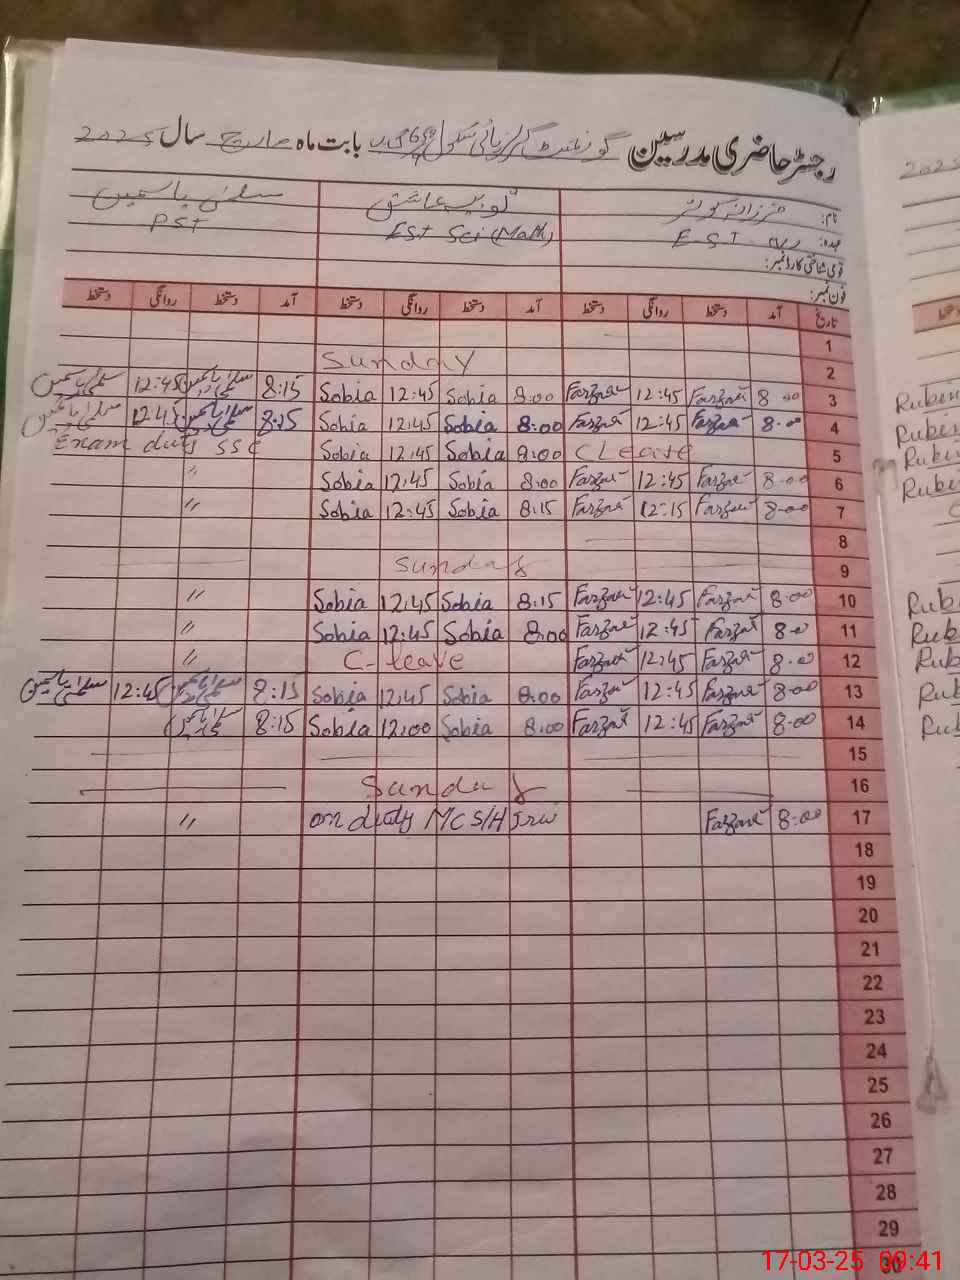 رجسٹر حاضری مدرسین گورنمنٹ گرلز ہائی سکول بابت ماہ مارچ سال 2025
نام: فرزانہ کوثر ثوبیہ عاشق سلمیٰ یاسمین
عہدہ: E-S-T EST Sci (Math) PST
قومی شناختی کارڈ نمبر:
فون نمبر:
تاریخ آمد دستخط روانگی دستخط آمد دستخط روانگی دستخط آمد دستخط روانگی دستخط
1
Sunday 2
سلمیٰ یاسمین 12:45 سلمیٰ یاسمین 8:15 Sobia 12:45 Sobia 8:00 Farzana 12:45 Farzana 8-00 3
سلمیٰ یاسمین 12:45 سلمیٰ یاسمین 8:15 Sobia 12:45 Sobia 8:00 Farzana 12:45 Farzana 8-00 4
Exam duty SSC Sobia 12:45 Sobia 8:00 C Leave 5
" Sobia 12:45 Sobia 8:00 Farzana 12:45 Farzana 8-00 6
" Sobia 12:45 Sobia 8:15 Farzana 12:15 Farzana 8-00 7
8
Sunday 9
" Sobia 12:45 Sobia 8:15 Farzana 12:45 Farzana 8:00 10
" Sobia 12:45 Sobia 8:00 Farzana 12:45 Farzana 8-0 11
" C-leave Farzana 12:45 Farzana 8-0 12
سلمیٰ یاسمین 12:45 سلمیٰ یاسمین 8:15 Sobia 12:45 Sobia 8:00 Farzana 12:45 Farzana 8-00 13
سلمیٰ یاسمین 8:15 Sobia 12:00 Sobia 8:00 Farzana 12:45 Farzana 8:00 14
15
Sunday 16
" on duty MC S/H Farzana 8:00 17
18
19
20
21
22
23
24
25
26
27
28
29
30
2025
17-03-25 09:41